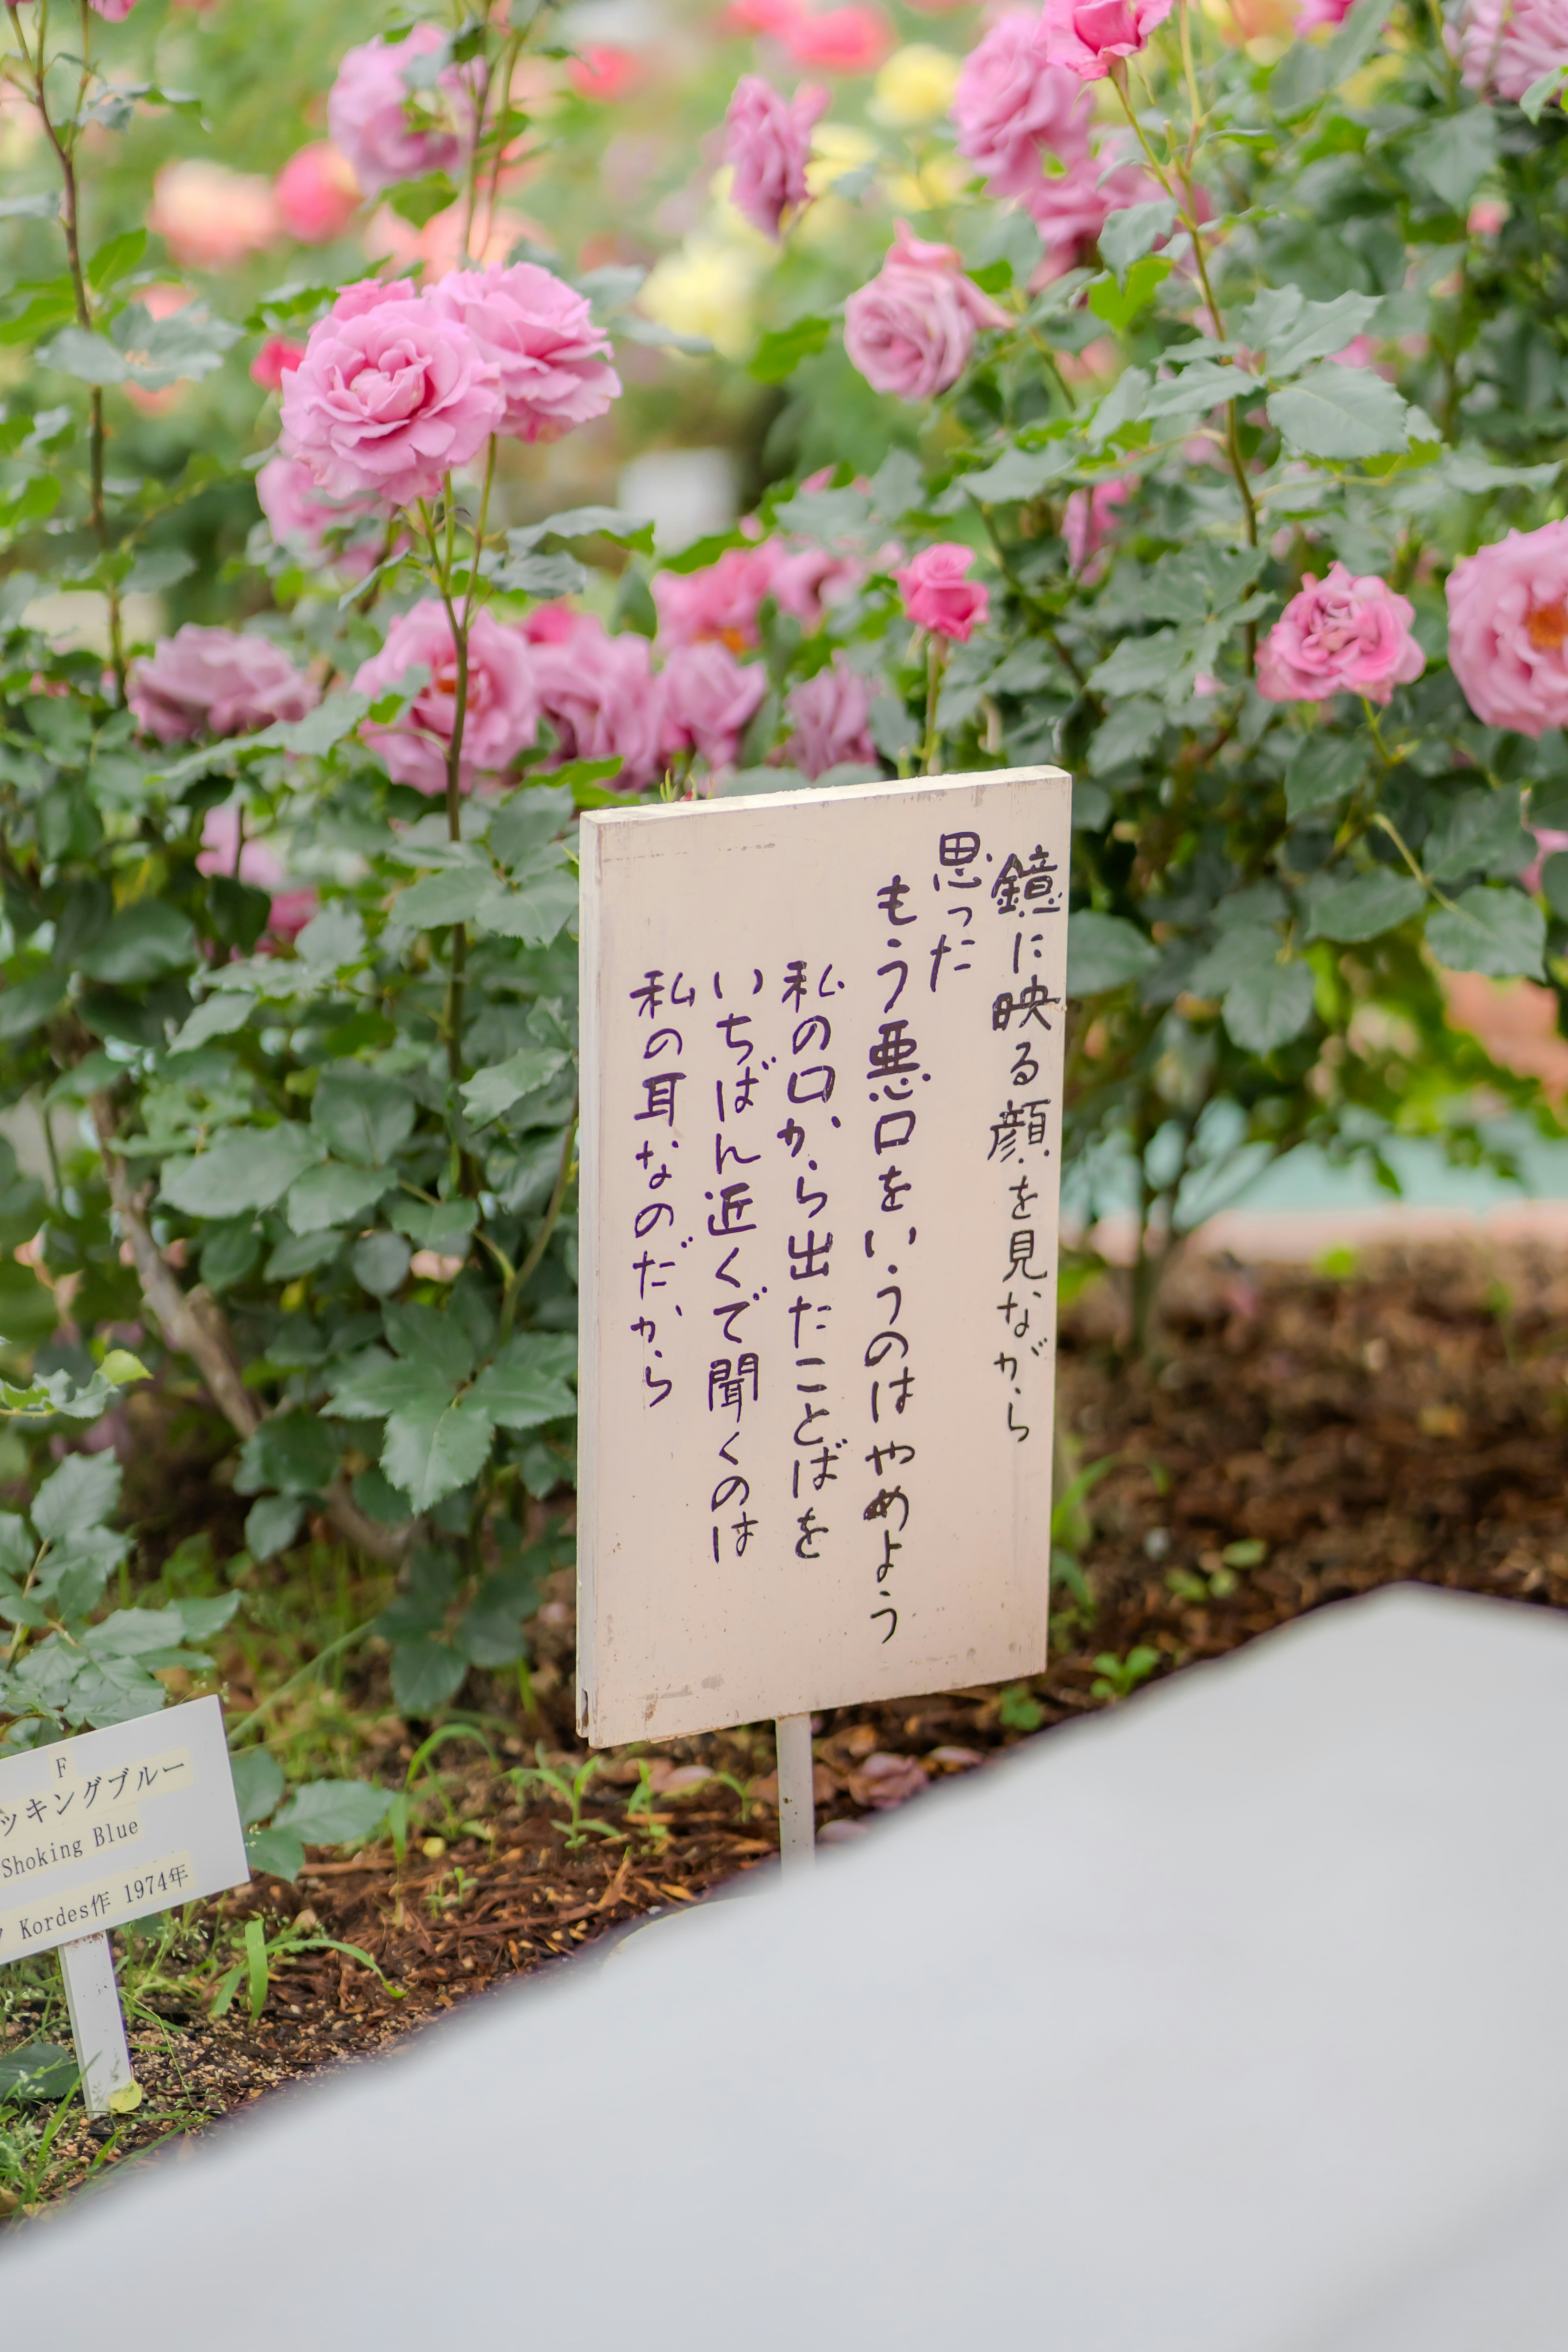 鏡に映る顔を見ながら
思った
もう悪口をいうのはやめよう
私の口から出たことばを
いちばん近くで聞くのは
私の耳なのだから
F
ッキングブルー
Shoking Blue
Kordes作 1974年